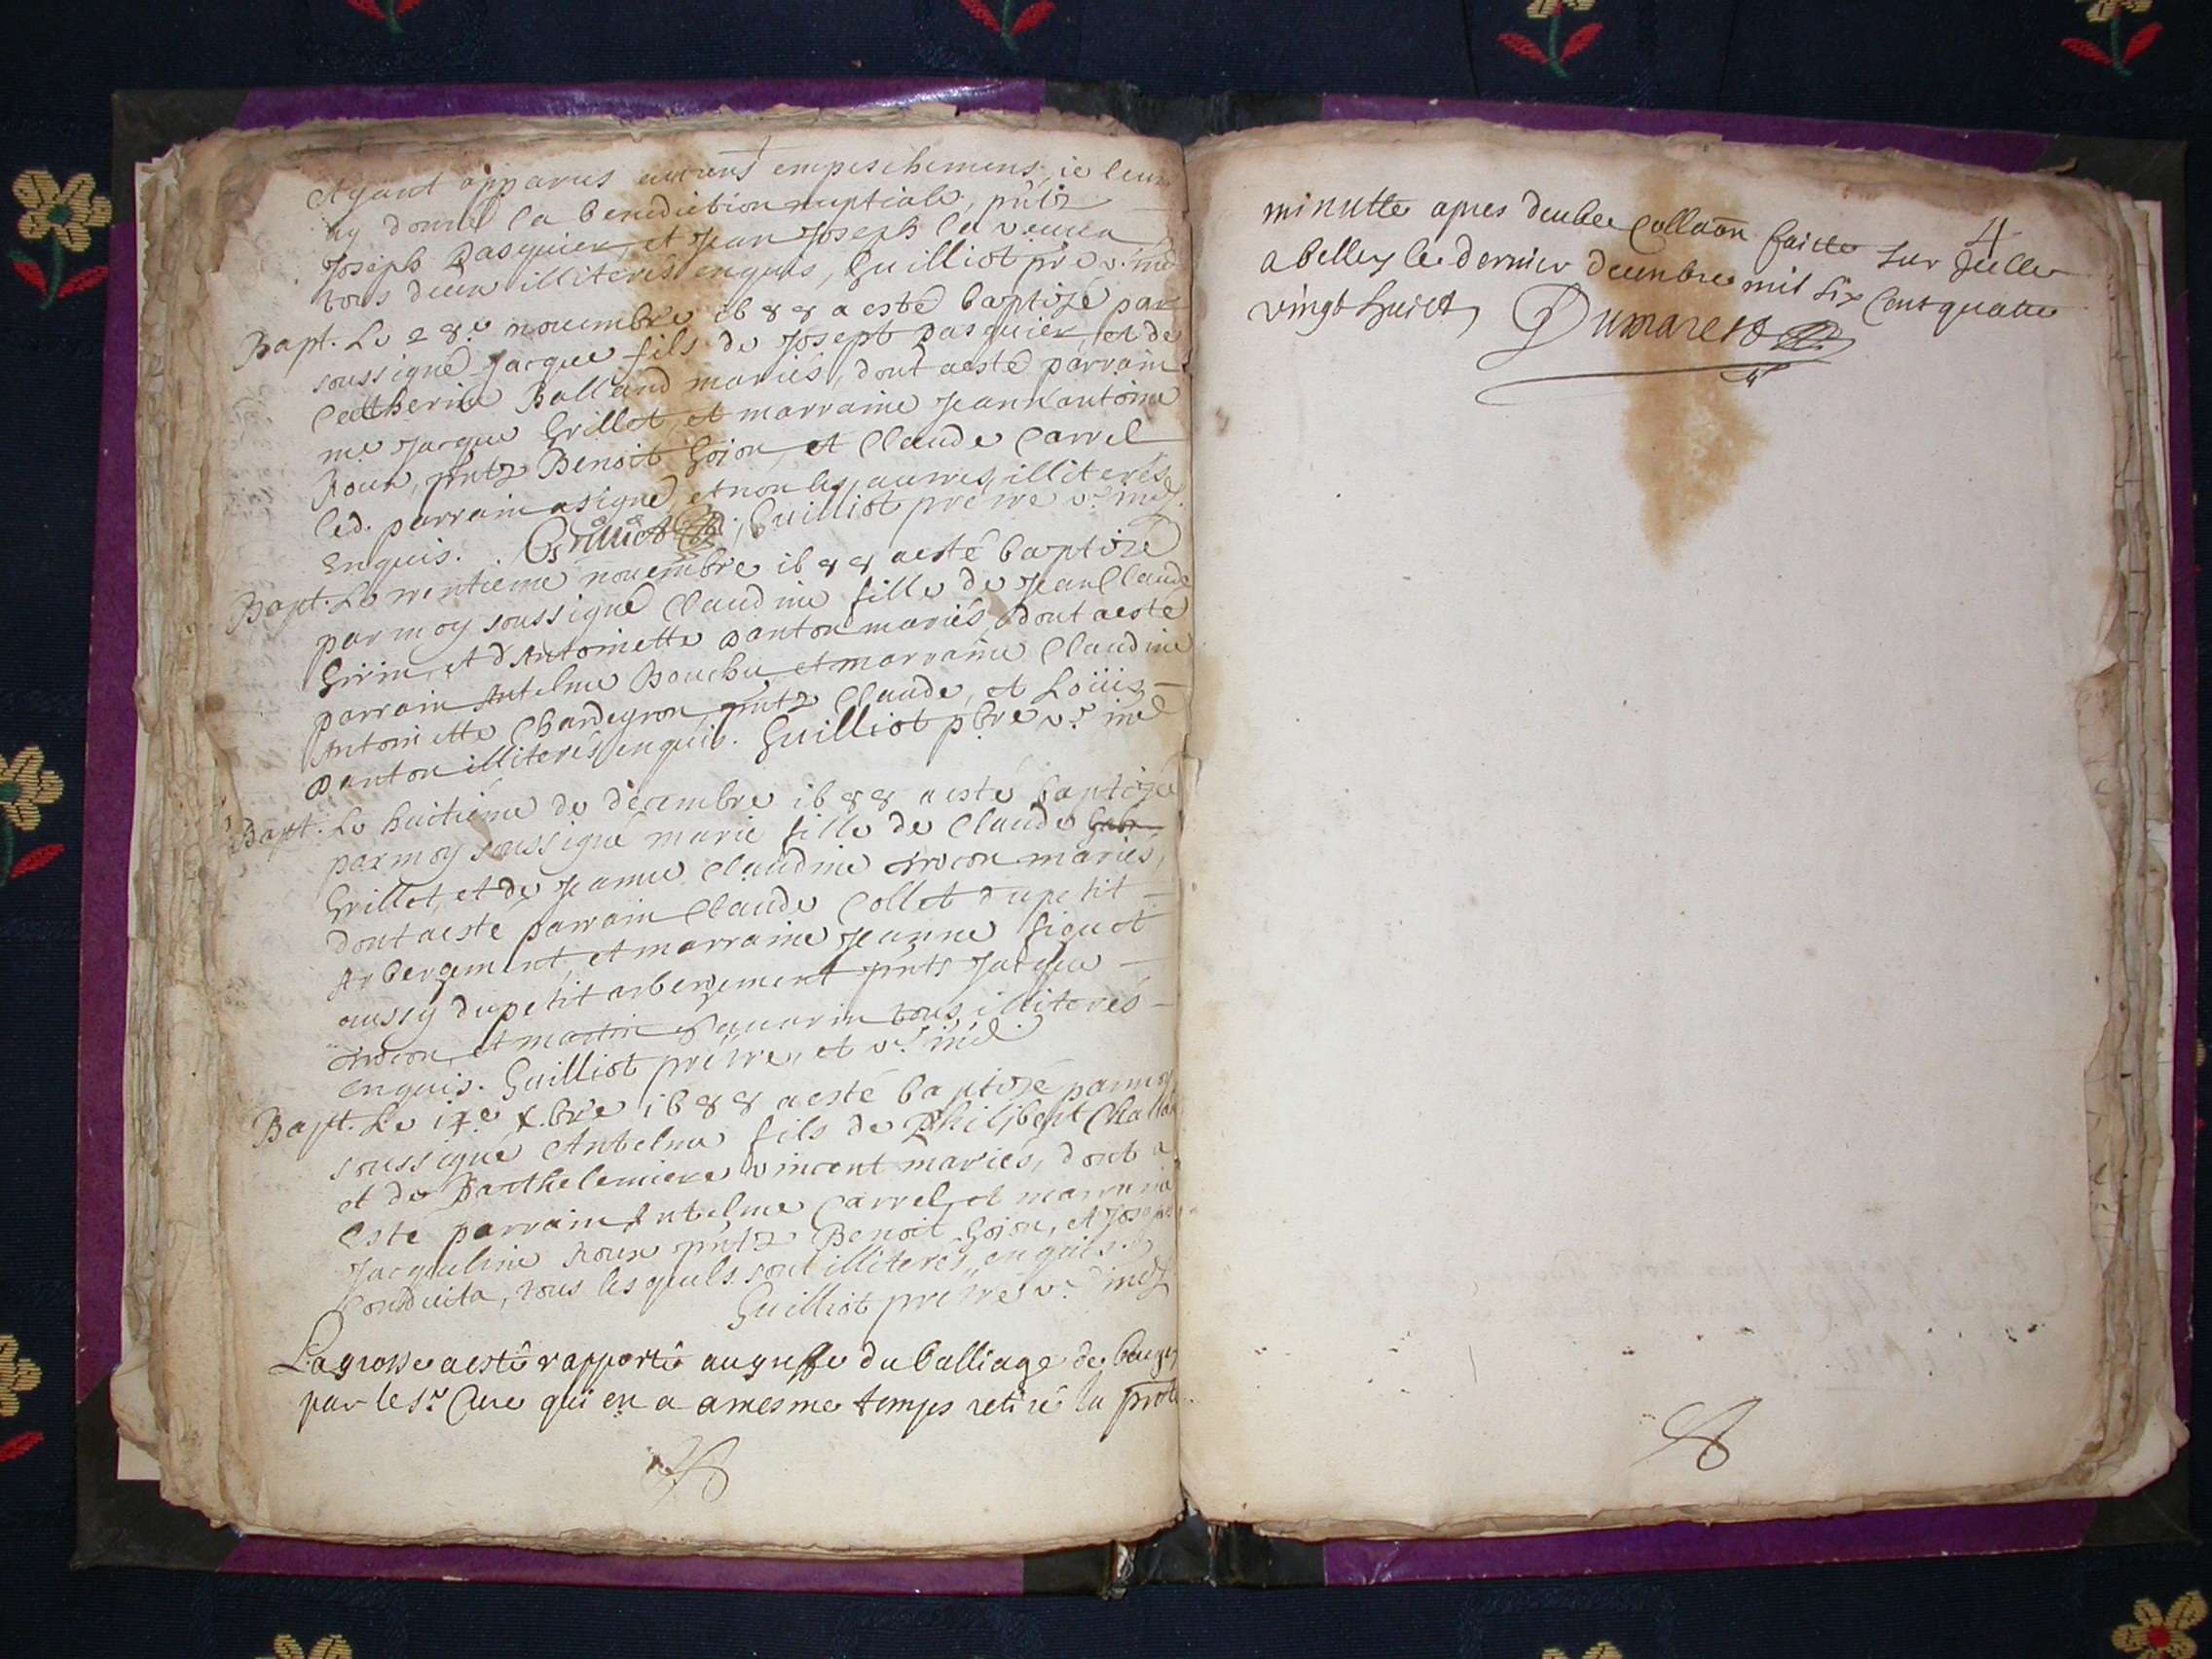 Ayant apparus aucuns empeschemens, ie leur
ay donné la benediction nuptiale, pntz
Joseph Pasquier, et Jean Joseph
tous deux illiterés enquis, Guilliot pre v.
Bapt. Le 28.e nouembre 1688 a esté baptizé par
soussigné Jacque fils de Josept pasquier, et de
Catherine Balland mariés, dont a esté parrain
me. Jacque Grillet, et marraine Jeanne antoina
Roux, pntz Benoit Gojon, et Claude Carrel
led. parrain a signé, et non les autres, illiterés
enquis. Grillet, Guilliot prêtre vr. ind.
Bapt. Le trentieme nouembre 1688 a esté baptizé
par moy soussigné Claudine fille de Jean Claude
Girin, et d'Antoinette Danton mariés, dont a esté
parrain Antelme Bouchu, et marraine Claudine
Antoinette Chardeyron, pntz Claude, et Loüis
Danton illiterés enquis. Guilliot pbre vr. ind
Bapt. Le huitiéme de décembre 1688 a esté baptizé
par moy soussigné marie fille de Claude
Grillet, et de Jeanne Claudine trocon mariés,
dont a esté parrain Claude Collet du petit
Arbergement, et marraine Jeanne
aussy du petit arbergement pnts Jacque
trocon, et martin tous illiterés
enquis. Guilliot prêtre, et vr. ind.
Bapt. Le 17.e X.bre 1688 a esté baptizé par moy
soussigné Antelme fils de Philibert
et de Barthelemiere vincent mariés, dont a
esté parrain Antelme Carrel, et marraine
Jacqueline Roux pntz Benoit Gojon, et Joseph
Conduita, tous lesquels sont illiterés enquis.
Guilliot prêtre vr. ind
La grosse a estê rapportê au greffe du balliage de beugey
par le sr. Cure qui en a a mesme temps retirê la
minutte apres deube Collaon faitte sur Jcelle
4
a belley le dernier decembre mil six Cent quatre
vingt huict, Dumarest